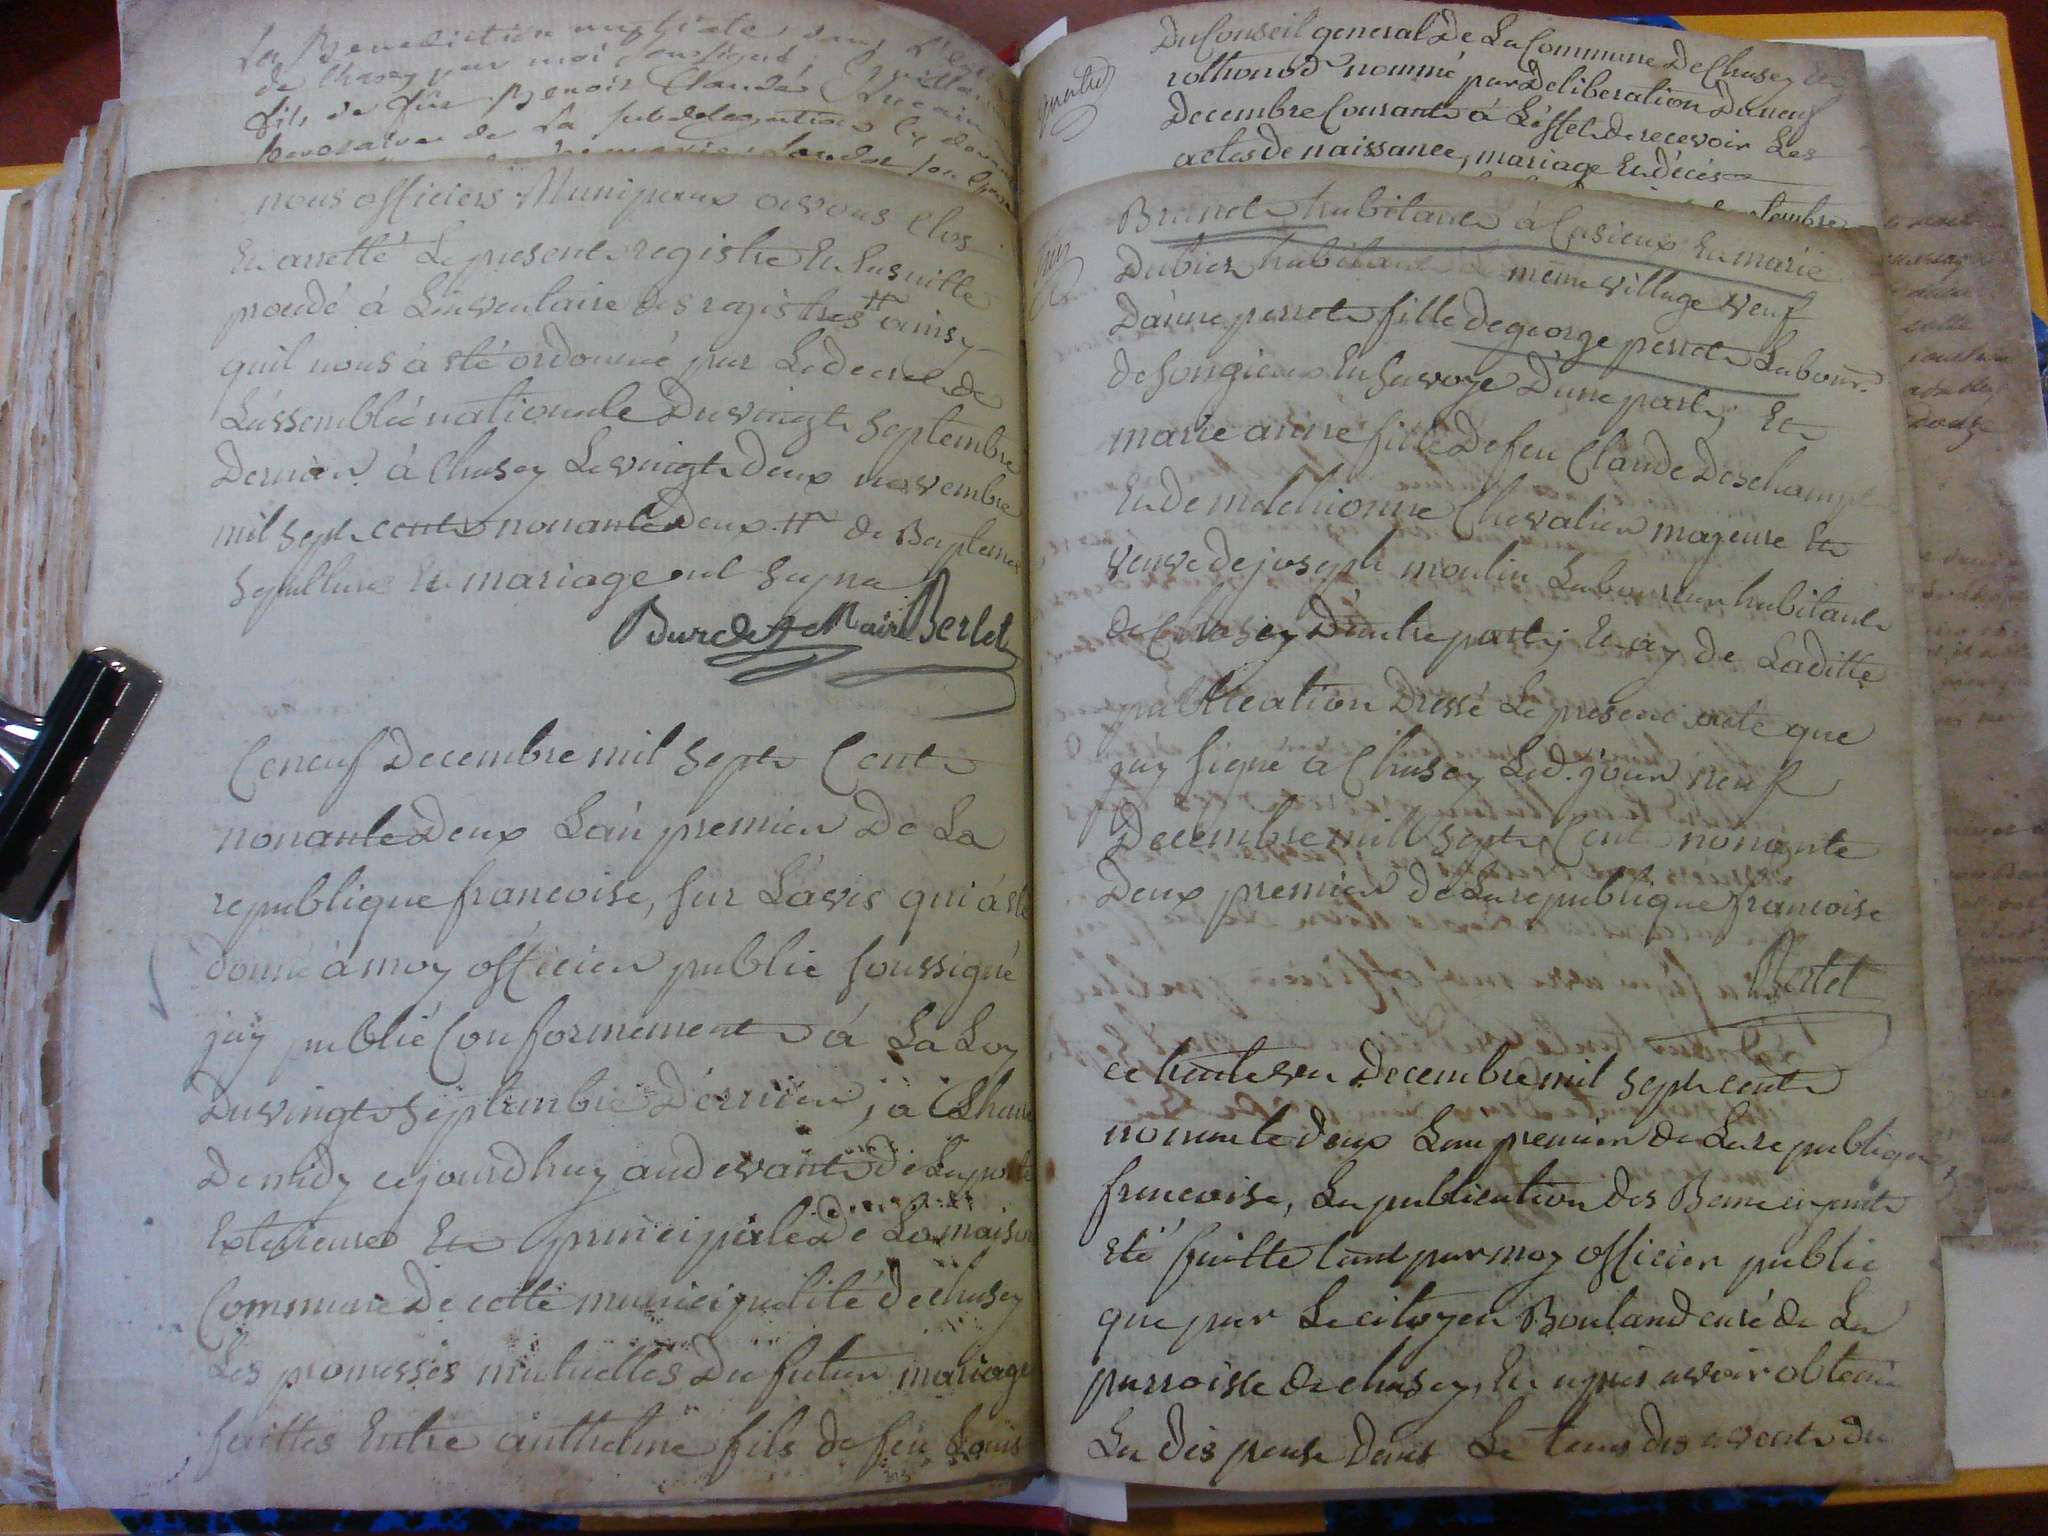 La Benediction nuptiale dans L'eglise
de Chasey par moi soussigné,
fils de feu Benoit Claude
de La subdelegation
nous officiers Municipaux avons Clos
Et arretté Le present registre Et Ensuitte
procedé à Linventaire des registres # ainsy
quil nous à eté ordonné par Le decret de
L'assemblée nationale Du vingt Septembre
Dernier à Chasey Le vingt deux novembre
mil Sept cent nonante deux # de Bapteme
Sepulture Et mariage
Burdet Maire Bertet
Ce neuf Decembre mil Sept Cent
nonante Deux L'an premier De La
republique francoise, sur L'avis qui à eté
donné à moy officier public soussigné
jay publié Conformement à La Loy
Du vingt Septembre Dernier, à L'heure
De midy ce jourdhuy au devant de La porte
Exterieure Et principale De La maison
Commune De cette municipalité de chasey
Les promesses mutuelles Du futur mariage
faittes Entre anthelme fils de feu Louis
Du Conseil general De La Commune De Chasey Et
rothonod nommé par Deliberation Du neuf
Decembre Courant à L'effet de recevoir Les
actes de naissance, mariage Et décès
Septembre
Brunet habitant à Cusieux Et marie
Dubier habitant même village veuf
D'anne perret fille de george perret Labour.
de Songieux En Savoye D'une part; Et
marie anne fille De feu Claude Deschamp
Et de melchionne Chevalier majeure Et
veuve de joseph moulin Laboureur habitant
de Chasey D'autre part; Et ay de Laditte
publication Dressé Le present acte que
jay signé à Chasey Led. jour neuf
Decembre mil Sept Cent nonante
Deux premier de La republique francoise
Bertet
ce trente un Decembre mil Sept cent
nonante deux L'an premier de La republique
francoise, La publication des Bans ayant
Eté faitte tant par moy officier public
que par Le citoyen Bouland curé de La
parroisse de chasey, Et apres avoir obtenu
La dispense dans Le tems des avents du